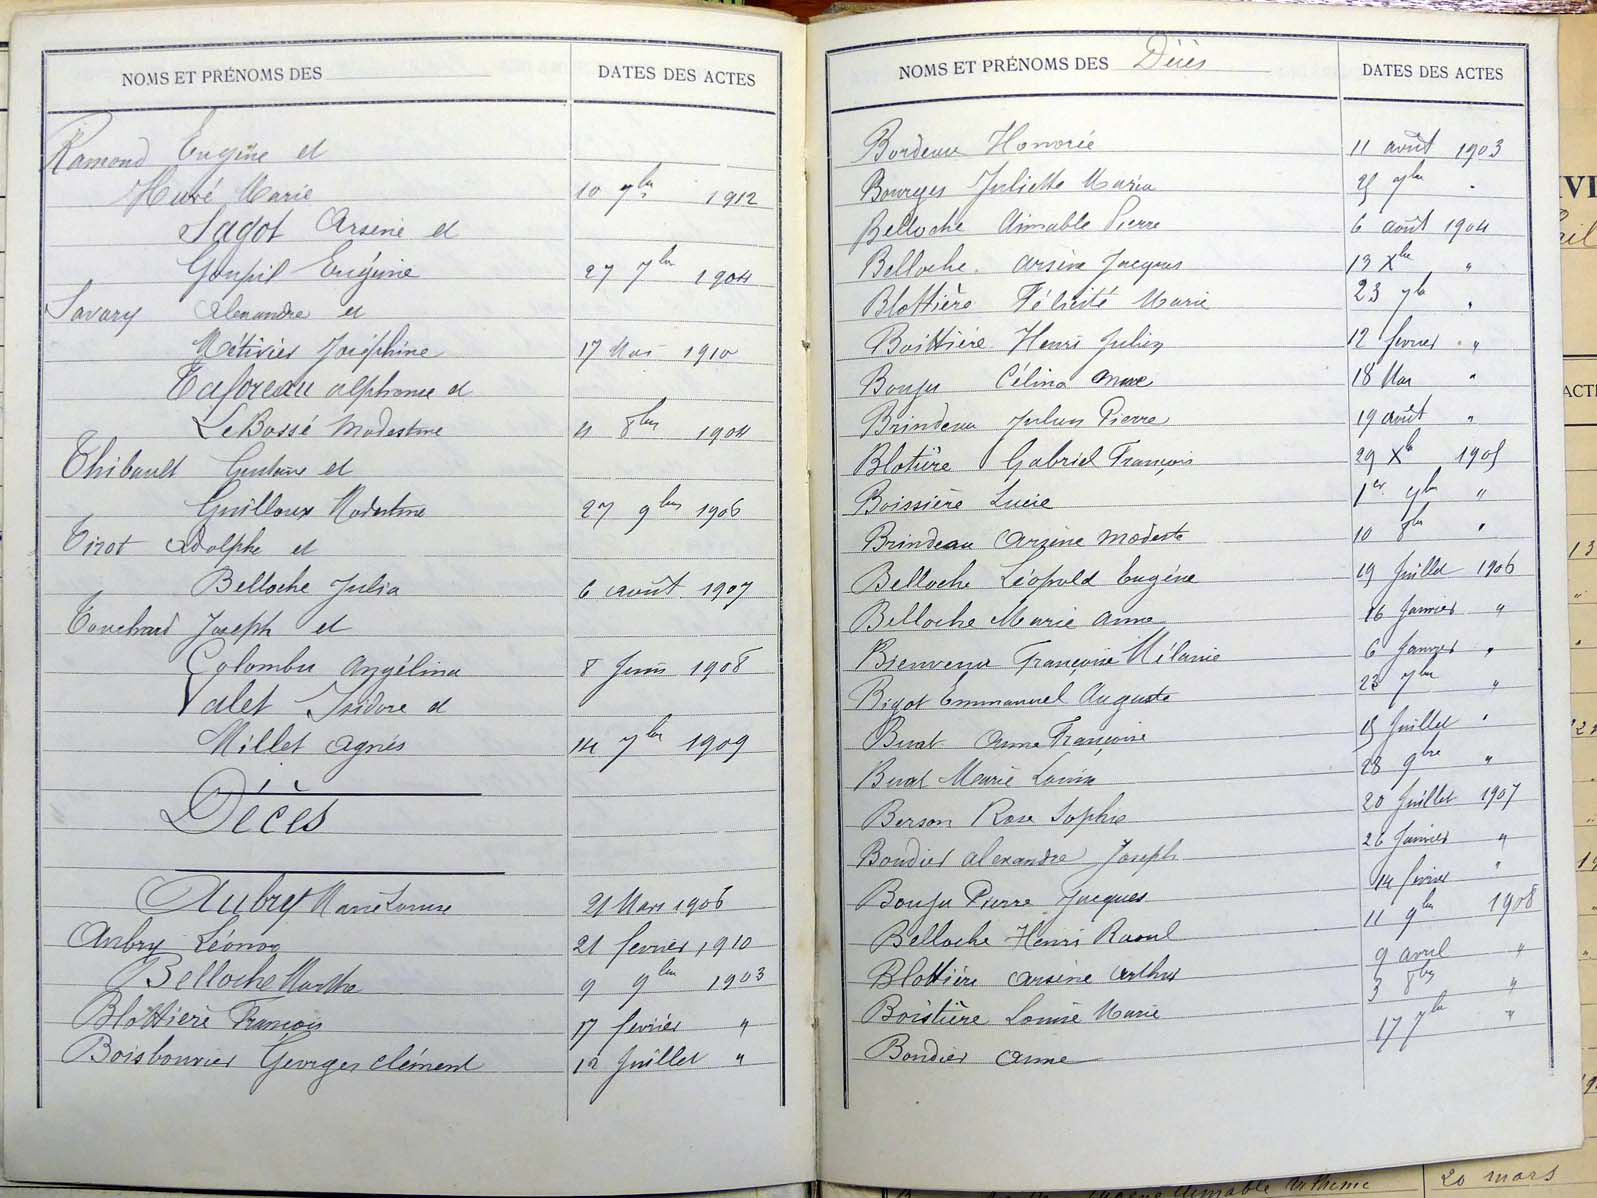 NOMS ET PRÉNOMS DES DATES DES ACTES
Ramond Eugène et
Huré Marie 10 7bre 1912
Sagot Arsène et
Goupil Eugénie 27 7bre 1904
Savary Alexandre et
Métivier Joséphine 17 Mai 1910
Taforeau Alphonse et
LeBossé Modestine 4 8bre 1904
Thibault Gustave et
Guilloux Modestine 27 9bre 1906
Tirot Adolphe et
Belloche Julia 6 août 1907
Touchard Joseph et
Colombu Angélina 8 Juin 1908
Valet Isidore et
Millet Agnès 14 7bre 1909
Décès
Aubry Marie Louise 21 Mars 1906
Aubry Léonor 21 fevrier 1910
Belloche Marthe 9 9bre 1903
Blottière François 17 fevrier "
Boisbouvier Georges Clément 12 Juillet "
NOMS ET PRÉNOMS DES Décès DATES DES ACTES
Bordeau Honorée 11 août 1903
Bourges Juliette Maria 25 7bre "
Belloche Aimable Pierre 6 août 1904
Belloche Arsène Jacques 13 Xbre "
Blottière Félicité Marie 23 7bre "
Boittière Henri Julien 12 fevrier "
Bouju Célina Anne 18 Mai "
Brindeau Julien Pierre 19 août "
Blotière Gabriel François 29 Xbre 1905
Boissière Lucie 1er 9bre "
Brindeau Arsène Modeste 10 8bre "
Belloche Léopold Eugène 19 Juillet 1906
Belloche Marie Anne 16 Janvier "
Bienvenu Françoise Mélanie 6 Janvier "
Bigot Emmanuel Auguste 23 7bre "
Buat Anne Françoise 15 Juillet "
Buat Marie Louise 28 9bre "
Berson Rose Sophie 20 Juillet 1907
Boudier Alexandre Joseph 26 Janvier "
Bouju Pierre Jacques 14 fevrier "
Belloche Henri Raoul 11 9bre 1908
Blottière Arsène Arthur 9 avril "
Boistière Louise Marie 3 8bre "
Boudier Anne 17 7bre "
20 mars